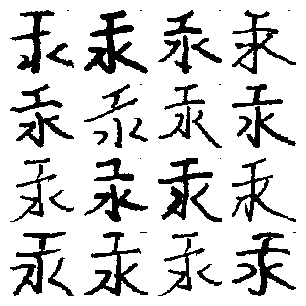 汞汞汞汞
汞汞汞汞
汞汞汞汞
汞汞汞汞